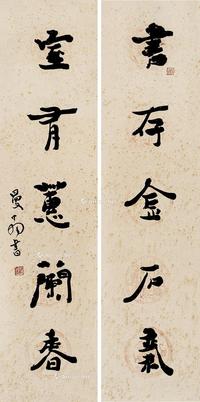 書存金石氣
室有蕙蘭春
曼翁書